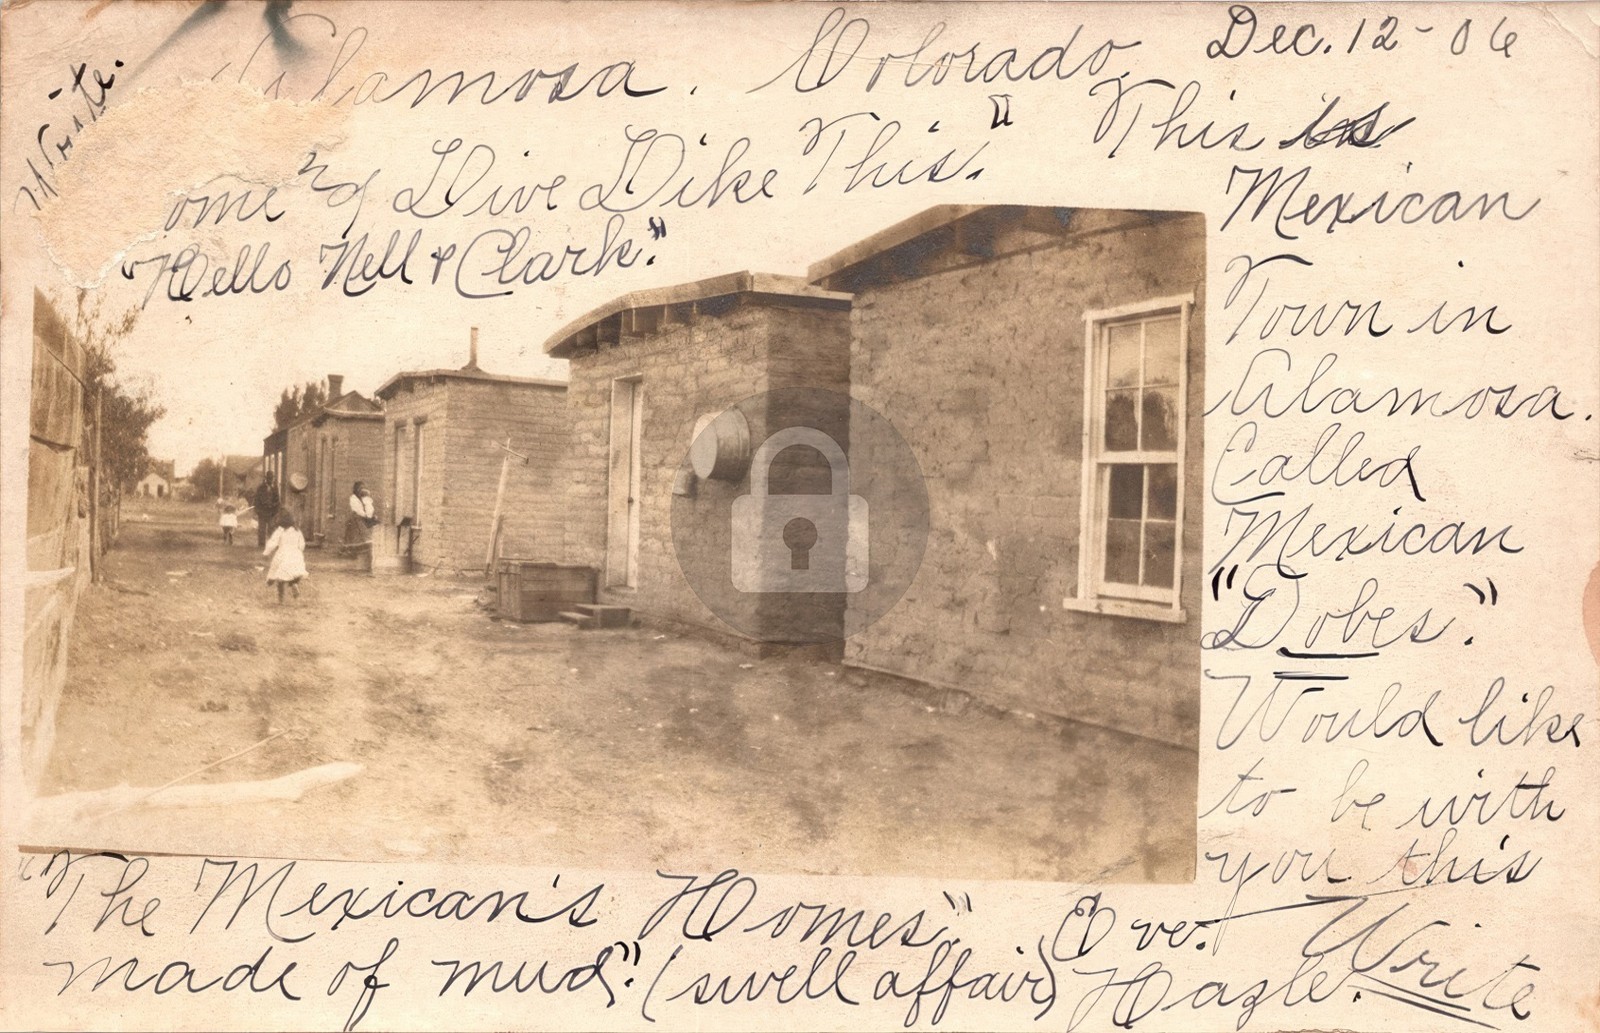 Write.
Alamosa. Colorado. Dec. 12-06
ome Live Like This."
"Hello Nell & Clark."
This is
Mexican
Town in
Alamosa.
Called
Mexican
"Dobes".
Would like
to be with
you this
Over. Write
"The Mexican's Homes"
made of mud". (swell affair) Hazle.